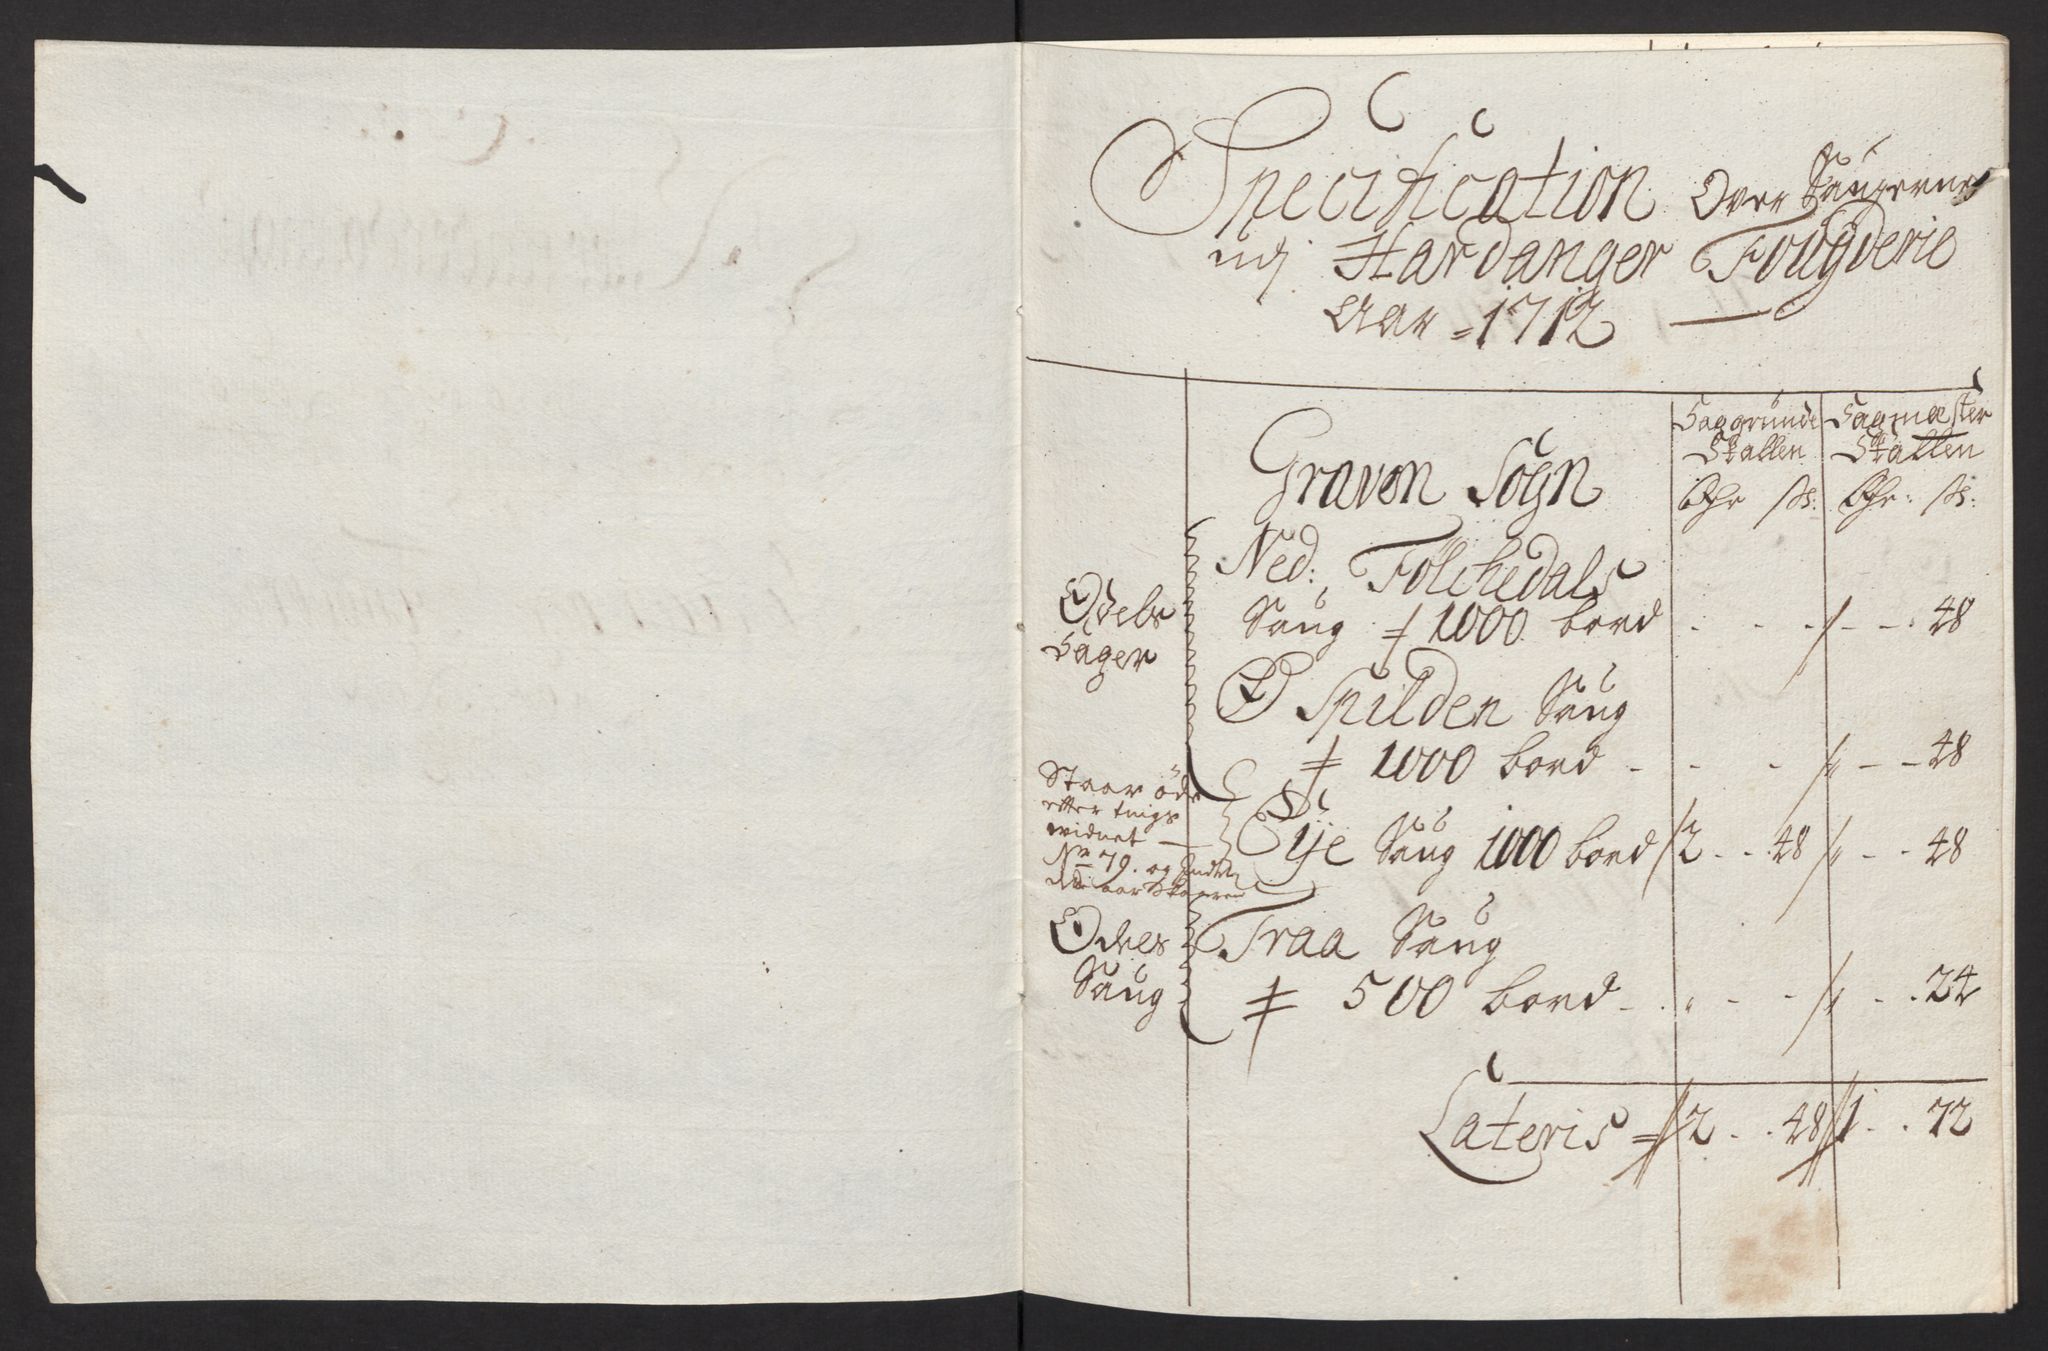 Specification Over Saugerne
udj Hardanger Fougderie
Aar 1712
Saggrunde Sagmester
Skatten Skatten
Rdr ß: Rdr: ß:
Graven Sogn
Ned: Folchedals
Odels
Sager
Saug 1000 bord - - - - - 48
Spilden Saug
1000 bord - - - - - 48
Staar öde
efter tings
vidnet
No 79. og
Eÿe Saug 1000 bord 2 - - 48 - - 48
Odels
Saug
Traa Saug
500 bord - - - - - 24
Lateris = 2 - - 48 1 - - 72